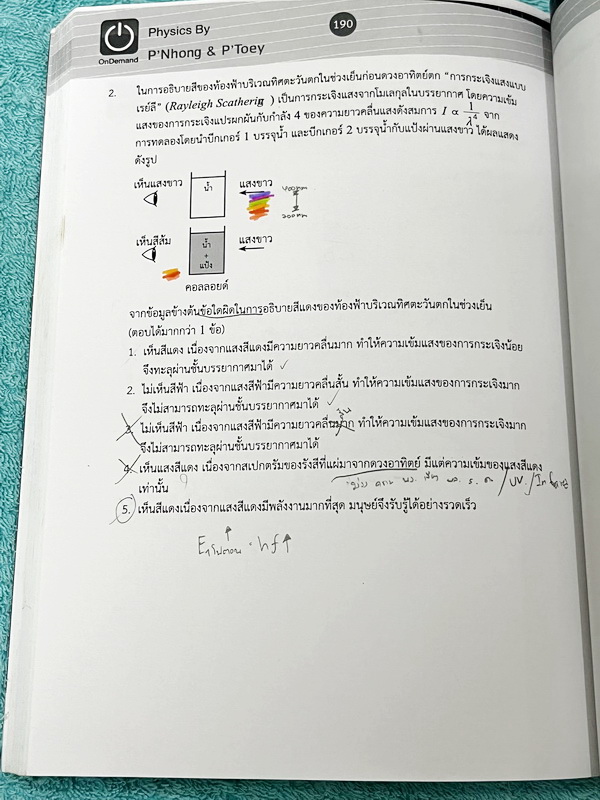 Physics By
190
OnDemand
P'Nhong & P'Toey
2. ในการอธิบายสีของท้องฟ้าบริเวณทิศตะวันตกในช่วงเย็นก่อนดวงอาทิตย์ตก "การกระเจิงแสงแบบ
เรย์ลี" (Rayleigh Scatherig ) เป็นการกระเจิงแสงจากโมเลกุลในบรรยากาศ โดยความเข้ม
แสงของการกระเจิงแปรผกผันกับกำลัง 4 ของความยาวคลื่นแสงดังสมการ I ∝ 1/λ⁴ จาก
การทดลองโดยนำบีกเกอร์ 1 บรรจุน้ำ และบีกเกอร์ 2 บรรจุน้ำกับแป้งผ่านแสงขาว ได้ผลแสดง
ดังรูป
เห็นแสงขาว น้ำ แสงขาว 400nm
700nm
เห็นสีส้ม น้ำ + แป้ง แสงขาว
คอลลอยด์
จากข้อมูลข้างต้นข้อใดผิดในการอธิบายสีแดงของท้องฟ้าบริเวณทิศตะวันตกในช่วงเย็น
(ตอบได้มากกว่า 1 ข้อ)
1. เห็นสีแดง เนื่องจากแสงสีแดงมีความยาวคลื่นมาก ทำให้ความเข้มแสงของการกระเจิงน้อย
จึงทะลุผ่านชั้นบรรยากาศมาได้
2. ไม่เห็นสีฟ้า เนื่องจากแสงสีฟ้ามีความยาวคลื่นสั้น ทำให้ความเข้มแสงของการกระเจิงมาก
จึงไม่สามารถทะลุผ่านชั้นบรรยากาศมาได้
สั้น
3. ไม่เห็นสีฟ้า เนื่องจากแสงสีฟ้ามีความยาวคลื่นมาก ทำให้ความเข้มแสงของการกระเจิงมาก
จึงไม่สามารถทะลุผ่านชั้นบรรยากาศมาได้
4. เห็นแสงสีแดง เนื่องจากสเปกตรัมของรังสีที่แผ่มาจากดวงอาทิตย์ มีแต่ความเข้มของแสงสีแดง
เท่านั้น
/ UV /
5. เห็นสีแดงเนื่องจากแสงสีแดงมีพลังงานมากที่สุด มนุษย์จึงรับรู้ได้อย่างรวดเร็ว
hf↑